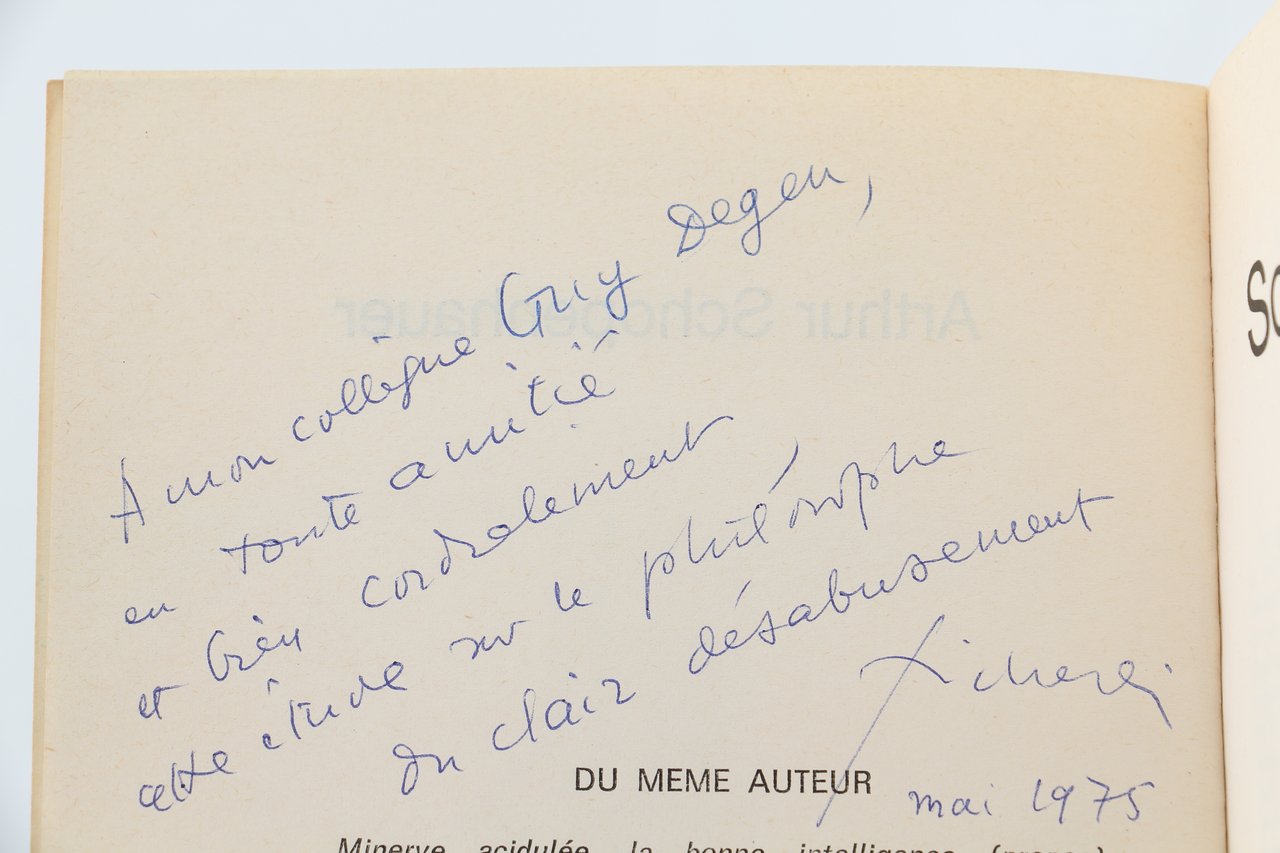 A mon collègue Guy Degen,
en toute amitié
et bien cordialement,
cette étude sur le philosophe
du clair désabusement
mai 1975
DU MEME AUTEUR
Minerve acidulée, la bonne intelligence (proses)
Arthur Schopenhauer